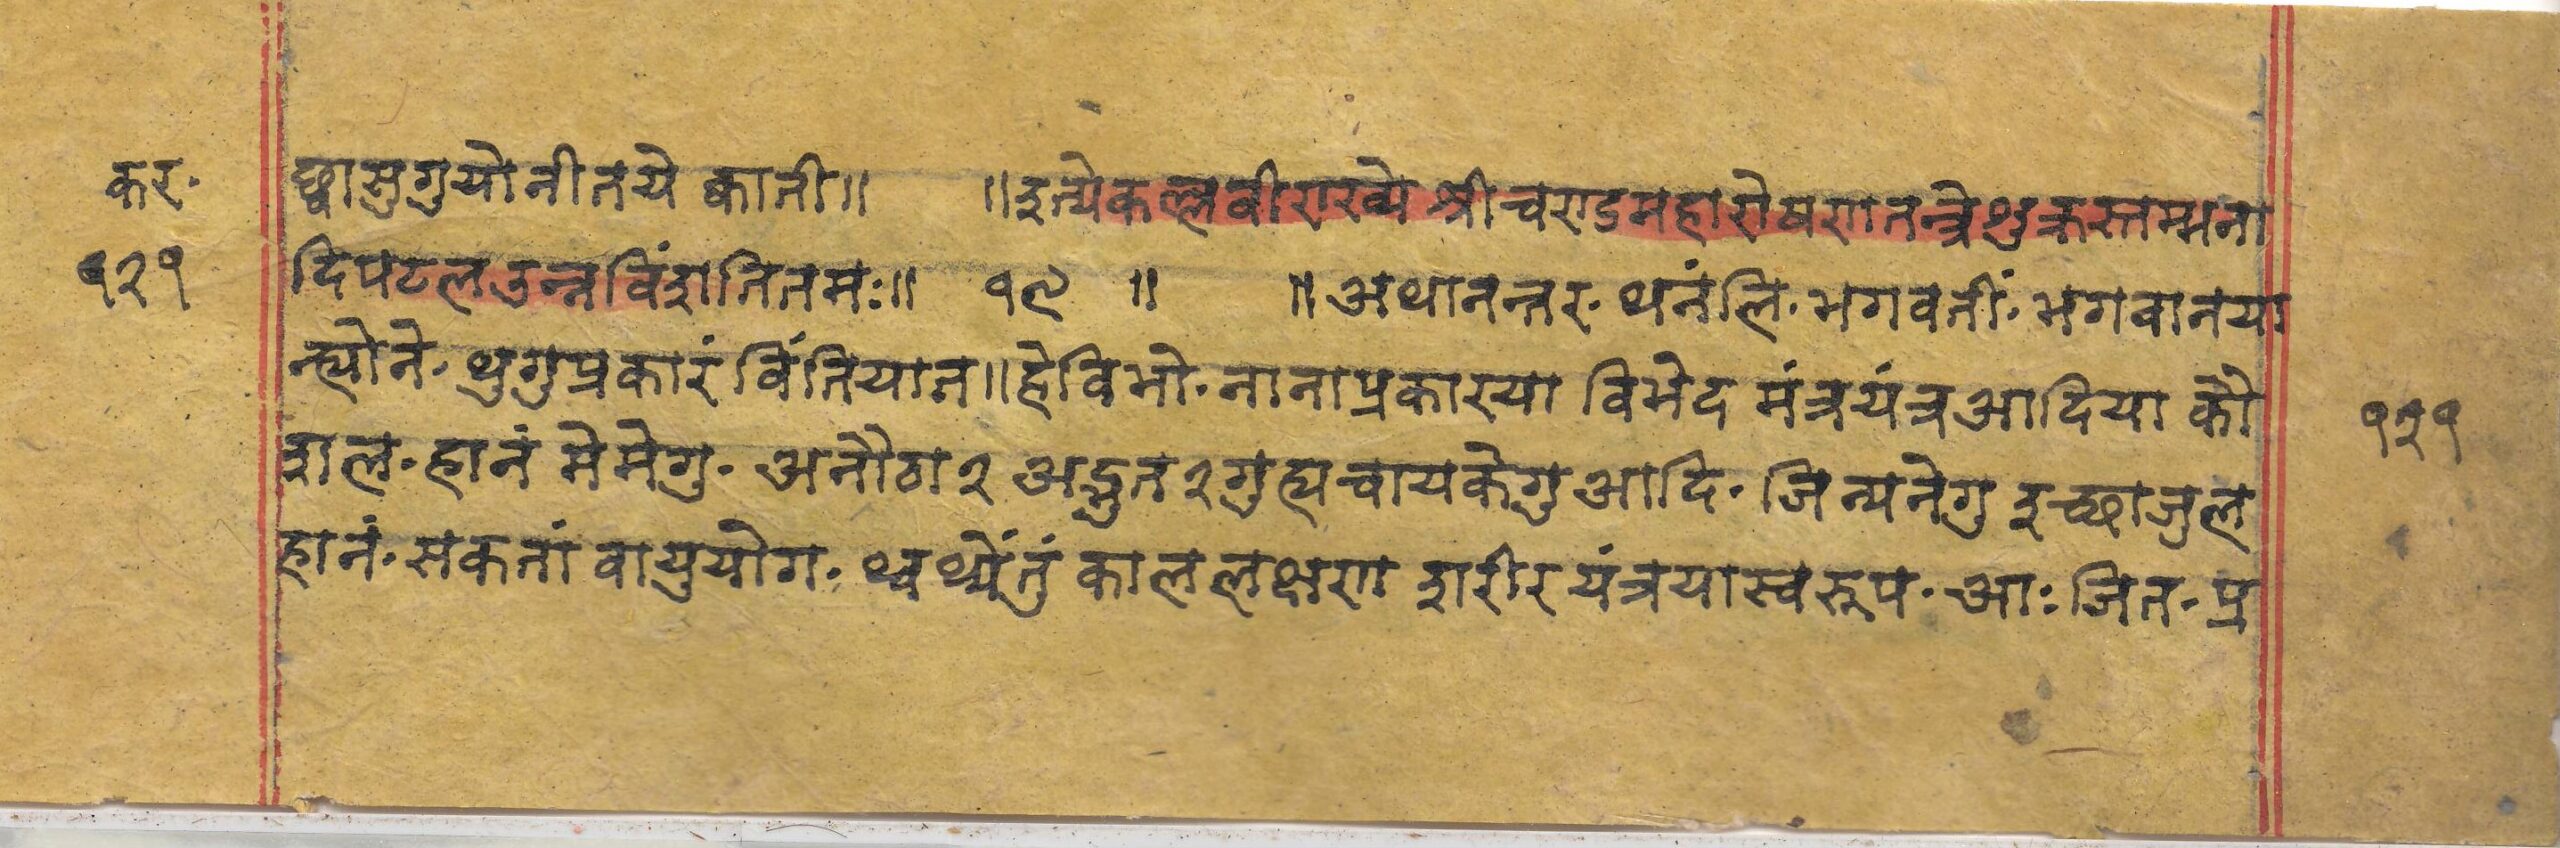 कर॰ छ्वासुगुयोनीतये काती॥ ॥इत्येकल्लवीराख्ये श्रीचण्डमहारोषणतन्त्रेशुक्रस्तम्भना
१२१ दिपटलउन्नविंशतितमः॥ १९ ॥ ॥अथानन्तर॰ थनंलि॰भगवतीं॰भगवानया
न्ह्योने॰थुगुप्रकारं विंतियात॥हेविभो॰नानाप्रकारया विभेद मंत्रयंत्रआदिया कौ
शल॰हानं मेमेगु॰ अनौठा२ अद्भुत२गुह्यचायकेगुआदि॰ जिन्यनेगु इच्छाजुल १२१
हानं॰सकतां वायुयोग॰ थ्वथ्येंतुं काललक्षण शरीरयंत्रयास्वरूप॰आः जित॰प्र